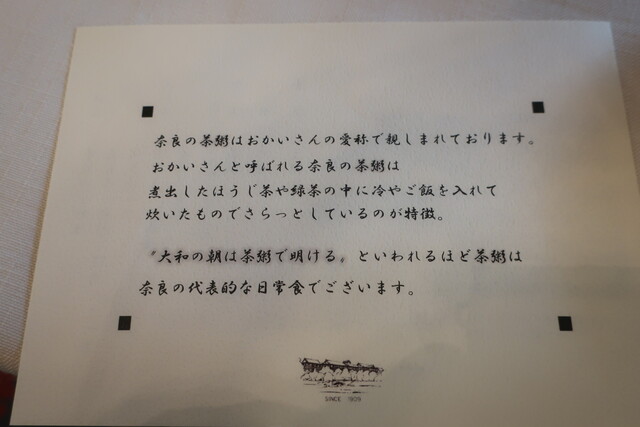 奈良の茶粥はおかいさんの愛称で親しまれております。
おかいさんと呼ばれる奈良の茶粥は
煮出したほうじ茶や緑茶の中に冷やご飯を入れて
炊いたものでさらっとしているのが特徴。
〝大和の朝は茶粥で明ける〟といわれるほど茶粥は
奈良の代表的な日常食でございます。
SINCE 1909